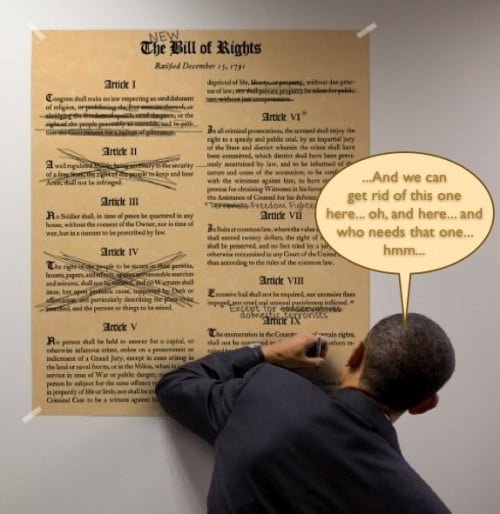 NEW
The Bill of Rights
Ratified December 15, 1791
Article I
Congress shall make no law respecting an establishment
of religion, or prohibiting the free exercise thereof, or
abridging the freedom of speech, or of the press, or the
right of the people peaceably to assemble, and to peti-
tion the Government for a redress of grievances.
Article II
A well regulated Militia, being necessary to the security
of a free State, the right of the people to keep and bear
Arms, shall not be infringed.
Article III
No Soldier shall, in time of peace be quartered in any
house, without the consent of the Owner, nor in time of
war, but in a manner to be prescribed by law.
Article IV
The right of the people to be secure in their persons,
houses, papers, and effects, against unreasonable searches
and seizures, shall not be violated, and no Warrants shall
issue, but upon probable cause, supported by Oath or
affirmation, and particularly describing the place to be
searched, and the persons or things to be seized.
Article V
No person shall be held to answer for a capital, or
otherwise infamous crime, unless on a presentment or
indictment of a Grand Jury, except in cases arising in
the land or naval forces, or in the Militia, when in
service in time of War or public danger;
person be subject for the same offence
in jeopardy of life or limb; nor shall be
Criminal Case to be a witness against
deprived of life, liberty, or property, without due proc-
ess of law; nor shall private property be taken for public
use, without just compensation.
Article VI
In all criminal prosecutions, the accused shall enjoy the
right to a speedy and public trial, by an impartial jury
of the State and district wherein the crime shall have
been committed, which district shall have been previ-
ously ascertained by law, and to be informed of the
nature and cause of the accusation; to be
with the witnesses against him; to have
process for obtaining Witnesses in his favor
the Assistance of Counsel for his defence
Terrorists Freedom Fighters
Article VII
In Suits at common law, where the value
shall exceed twenty dollars, the right of
shall be preserved, and no fact tried by a
otherwise reexamined in any Court of the United
than according to the rules of the common law.
Article VIII
Excessive bail shall not be required, nor excessive fines
imposed, nor cruel and unusual punishment inflicted.
Except for conservatives
domestic terrorists
Article IX
The enumeration in the Constitution of certain rights,
shall not be
others re-
...And we can
get rid of this one
here... oh, and here... and
who needs that one...
hmm...